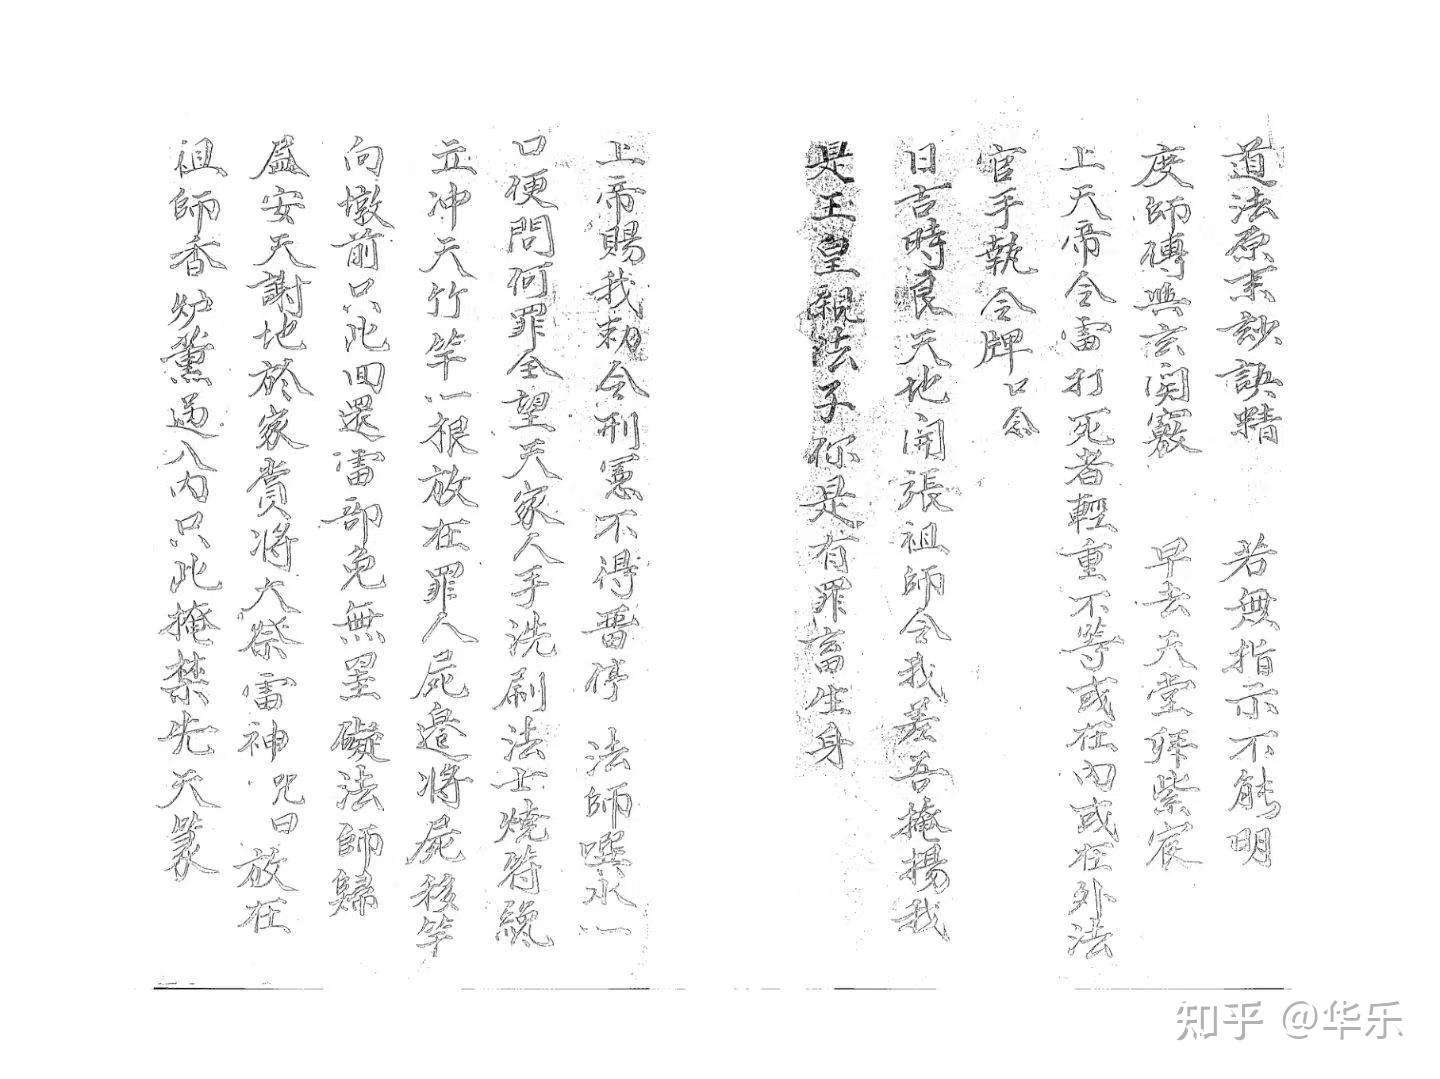 道法原来訣精 若無指示不能明
度師傳與玄関竅 早去天堂拜紫宸
上天帝令雷打死者輕重不等或在內或在外法
官手執令牌口念
日吉時良天地開張祖師令我差吾掩揚我
是玉皇親法子你是有罪畜生身
上帝賜我勅令刑憲不得畱停 法師噀水一
口便問何罪全望天家人手洗刷法士燒符
立冲天竹竿一根放在罪人屍邉将屍移竿
向墩前只此回還雷部免無罣礙法師歸
安天謝地於家賞将大祭雷神 咒曰 放在
祖師香炉薰過入內只此掩禁先天篆
知乎 @华乐